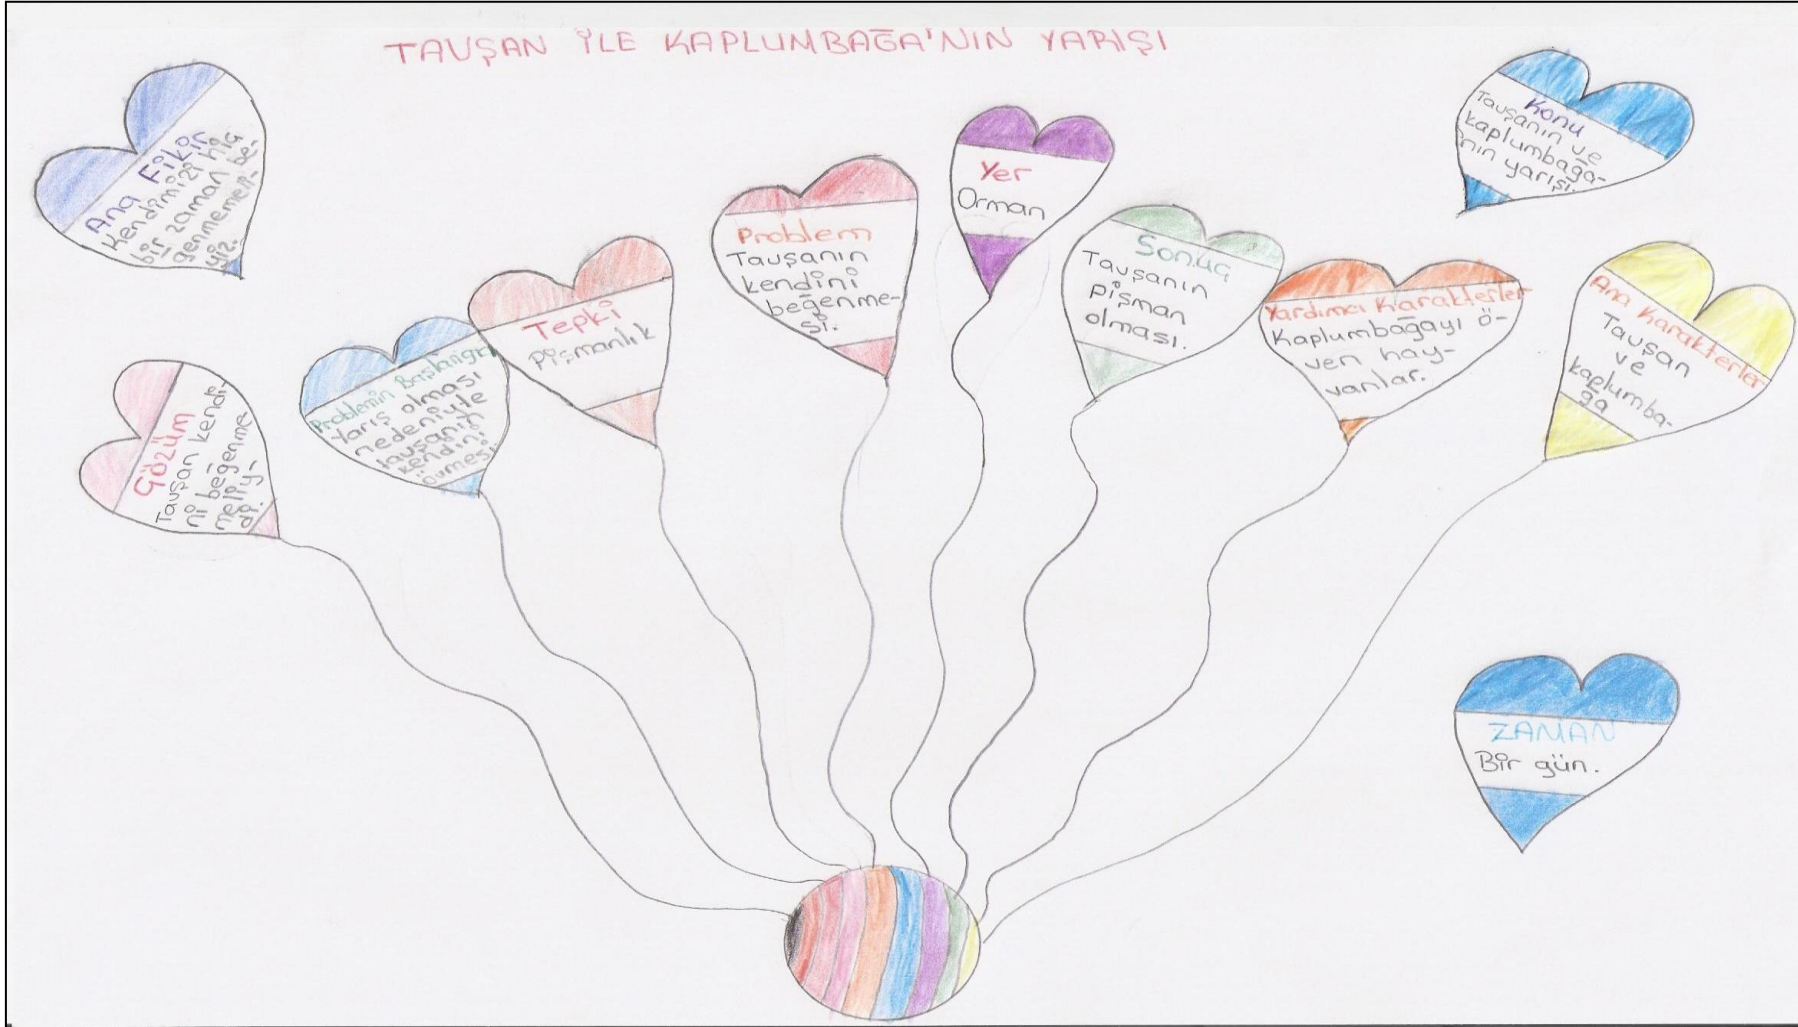 TAVŞAN İLE KAPLUMBAĞA'NIN YARIŞI
Ana Fikir
Kendimizi hiç
bir zaman be-
ğenmemeli-
yiz.
Çözüm
Tavşan kendi-
ni beğenme
meliy-
di.
Problemin Başlangıcı
Yarış olması
nedeniyle
tavşanın
kendini
övmesi.
Tepki
Pişmanlık
Problem
Tavşanın
kendini
beğenme-
si.
Yer
Orman
Sonuç
Tavşanın
pişman
olması.
Yardımcı Karakterler
Kaplumbağayı ö-
ven hay-
vanlar.
Konu
Tavşanın ve
kaplumbağa-
nın yarışı.
Ana Karakterler
Tavşan
ve
kaplumba-
ğa
ZAMAN
Bir gün.